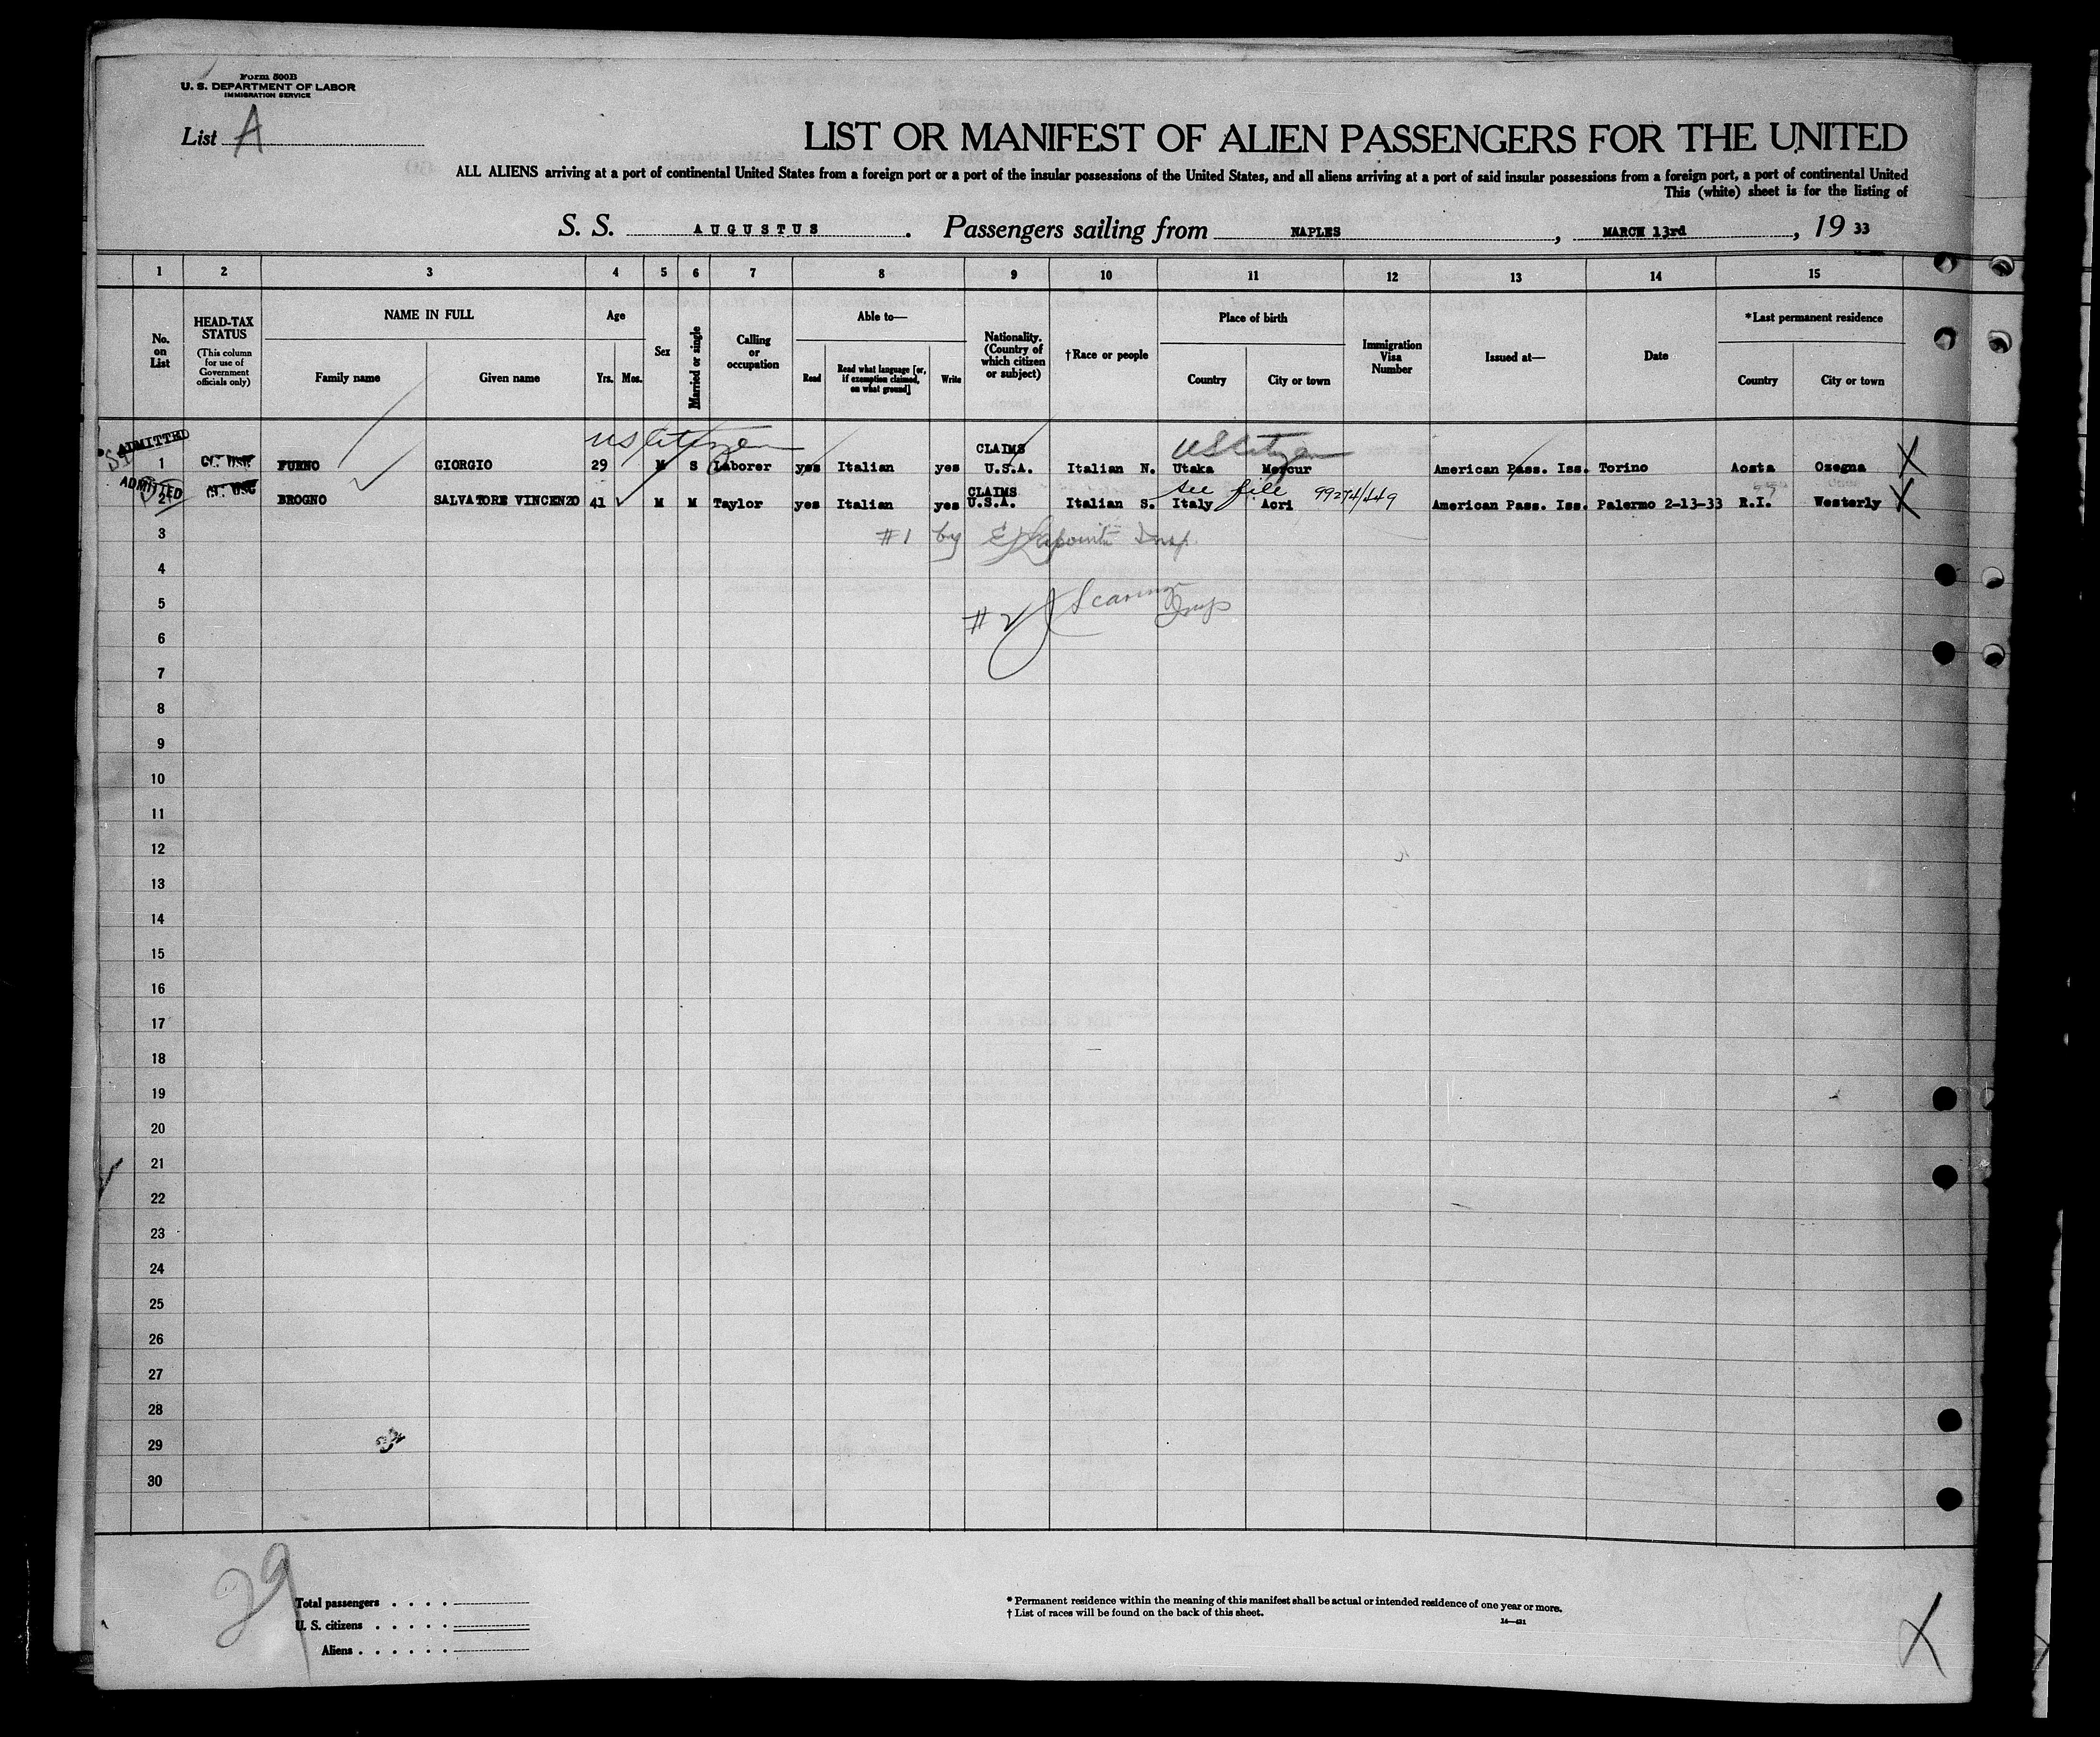 Form 500B
U. S. DEPARTMENT OF LABOR
IMMIGRATION SERVICE
List A
LIST OR MANIFEST OF ALIEN PASSENGERS FOR THE UNITED
ALL ALIENS arriving at a port of continental United States from a foreign port or a port of the insular possessions of the United States, and all aliens arriving at a port of said insular possessions from a foreign port, a port of continental United
This (white) sheet is for the listing of
S. S. AUGUSTUS. Passengers sailing from NAPLES, MARCH 13rd, 19 33
1 2 3 4 5 6 7 8 9 10 11 12 13 14 15
No. on List
HEAD-TAX STATUS
(This column for use of Government officials only)
NAME IN FULL
Family name Given name
Age
Yrs. Mos.
Sex
Married or single
Calling or occupation
Able to—
Read
Read what language [or, if exemption claimed, on what ground]
Write
Nationality. (Country of which citizen or subject)
†Race or people
Place of birth
Country City or town
Immigration Visa Number
Issued at—
Date
*Last permanent residence
Country City or town
ADMITTED US Citizen CLAIMS US Citizen
1 FURNO GIORGIO 29 M S Laborer yes Italian yes U.S.A. Italian N. Utaka Mercur American Pass. Iss. Torino Aosta Ozegna X
ADMITTED CLAIMS see file 99274/449
2 BROGNO SALVATORE VINCENZO 41 M M Taylor yes Italian yes U.S.A. Italian S. Italy Acri American Pass. Iss. Palermo 2-13-33 R.I. Westerly X
3 #1 by Lapointe Insp.
4
5 #2 Insp
6
7
8
9
10
11
12
13
14
15
16
17
18
19
20
21
22
23
24
25
26
27
28
29
30
29
Total passengers . . . .
U. S. citizens . . . . .
Aliens . . . . . .
* Permanent residence within the meaning of this manifest shall be actual or intended residence of one year or more.
† List of races will be found on the back of this sheet.
X